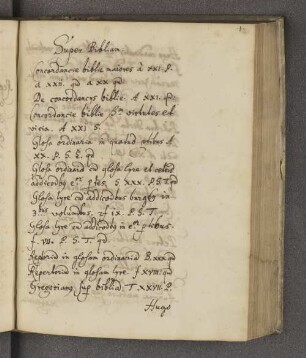 Super Bibliam
Concordancie biblie maiores à XXI. P.
A XXII. qd A XX qd.
De concordancijs biblie. A XXI. qd.
Concordancie biblie sm virtutes et
vicia. A XXI S.
Glosa ordinaria in quatuor
XX. P. S. T. qd
Glosa ordinaria cum glosa lyre et
additionibus S XXX. P. S. T. qd
Glosa lyre cu additionibus burgen. in
3bus voluminibus. f IX P. S. T.
Glosa lyre cu additionibus in
f. VIII. P. S. T. qd.
Reportorium in glosam ordinariam B. XXX qd
Repertorium in glosam lyre. f XVIII. qd
Gregorianus sup bibliam. T XXVII P.
Hugo